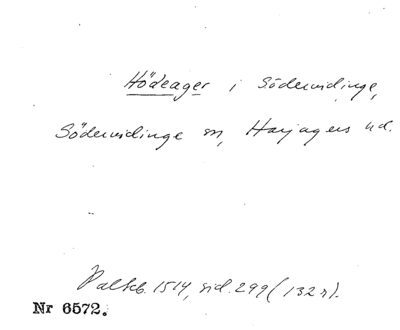 Hödeager i Södervidinge,
Södervidinge sn, Harjagers hd.
Palteb. 1514, sid. 299 (132 r).
Nr 6572.